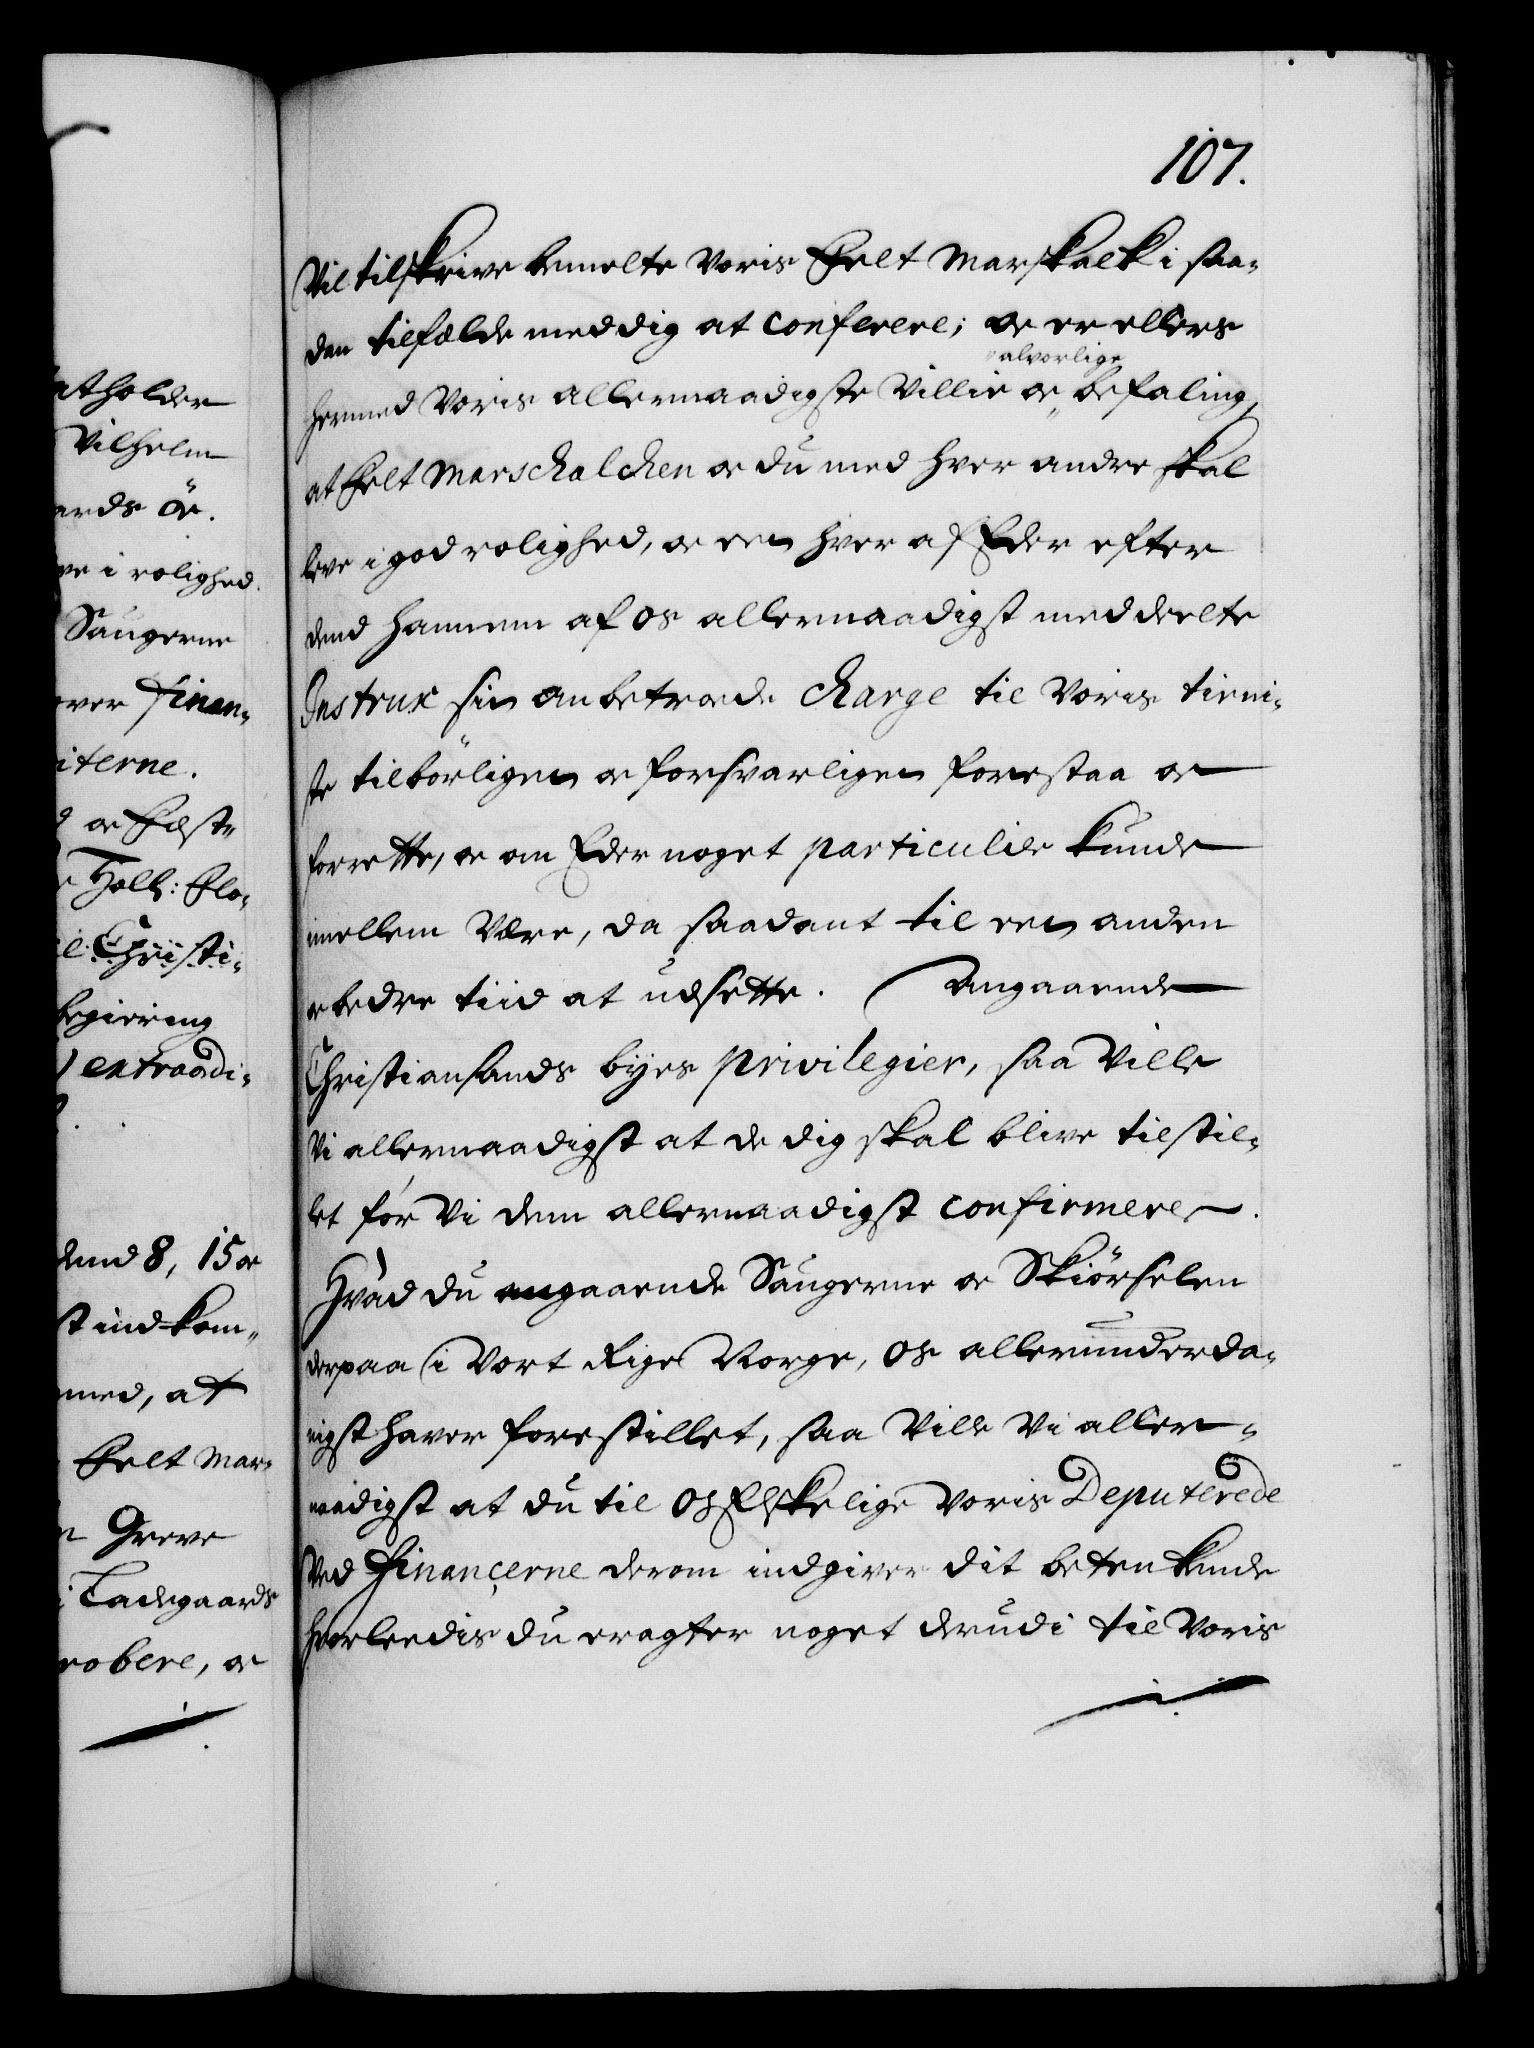 107.
atholder
Vilhelm
ards öe.
ve i rolighed.
Saugerne
over Finan-
iterne.
d oc Fæst-
r Holb: Flo-
il Christi-
begiering
extraordi-
dend 8, 15 oc
st ind kom-
med, at
Felt Mar-
n Greve
i Ladegaards
robere, oc
Vil tilskrive bemelte Voris Felt Marskalk i saa-
dan tilfælde med dig at conferere; oc er ellers
hermed Voris allernaadigste Villie oc alvorlige befaling,
at Felt Marschalchen oc du med hver andre skal
leve i god rolighed, oc een hver af Eder efter
dend hannem af os allernaadigst meddeelte
Instrux sin anbetroede charge til Voris tieni-
ste tilbörligen oc forsvarligen forestaa oc
forrette, oc om Eder noget particulier kunde
imellem Være, da saadant til een anden
oc bedre tiid at udsette. Angaaende
Christiansands byes privilegier, saa Ville
Vi allernaadigst at de dig skal blive tilstil-
let för Vi dem allernaadigst confirmerer.
Hvad du angaaende Saugerne oc Skiörselen
derpaa i Vort Rige Norge, os allerunderda-
nigst haver forestillet, saa Ville Vi aller-
naadigst at du til Os Elskelige Voris Deputerede
Ved Financerne derom indgiver dit betenkende
hvorleedis du eragter noget derudi til Voris